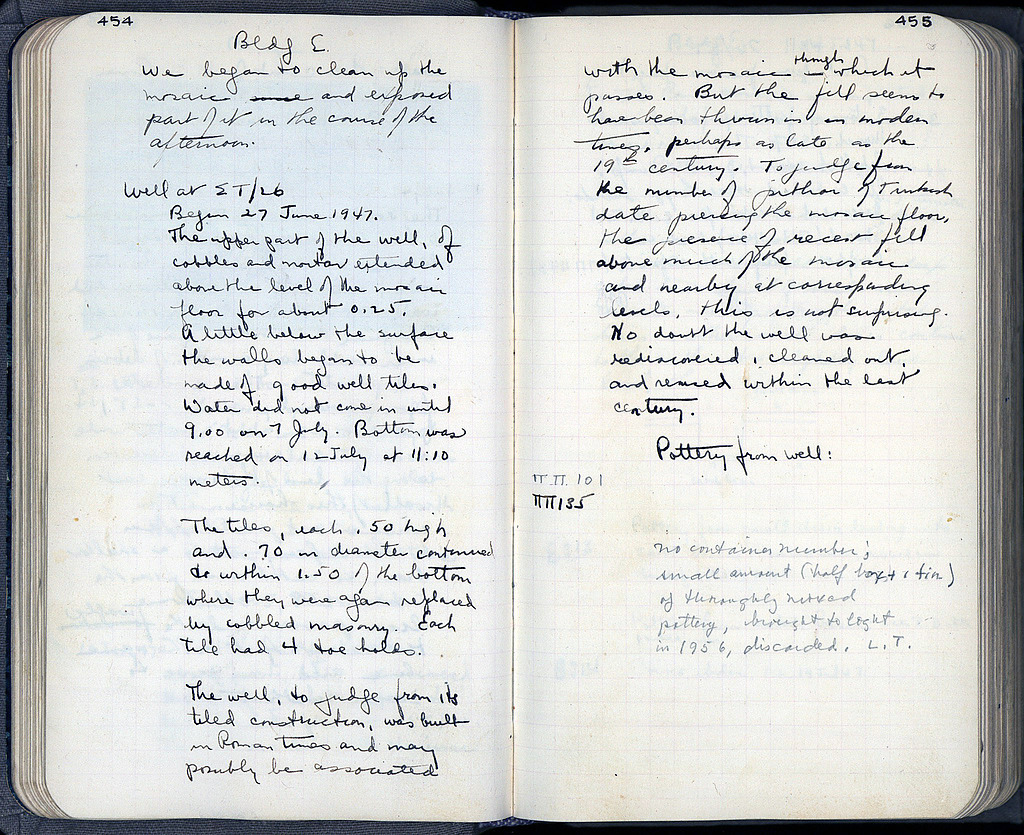 454
Bldg E.
We began to clean up the
mosaic and exposed
part of it in the course of the
afternoon.
Well at ΣΤ/26
Begun 27 June 1947.
The upper part of the well, of
cobbles and mortar extended
above the level of the mosaic
floor for about 0.25.
A little below the surface
the walls began to be
made of good well tiles.
Water did not come in until
9.00 on 7 July. Bottom was
reached on 12 July at 11:10
meters.
The tiles, each .50 high
and .70 in diameter continued
to within 1.50 of the bottom
where they were again replaced
by cobbled masonry. Each
tile had 4 toe holes.
The well, to judge from its
tiled construction, was built
in Roman times and may
possibly be associated
455
with the mosaic through which it
passes. But the fill seems to
have been thrown in in modern
times, perhaps as late as the
19th century. To judge from
the number of pithoi of Turkish
date piercing the mosaic floor,
the presence of recent fill
above much of the mosaic
and nearby at corresponding
levels, this is not surprising.
No doubt the well was
rediscovered, cleaned out,
and reused within the last
century.
Pottery from well:
ΠΠ 101
ΠΠ135
no container number;
small amount (half box + 1 tin)
of thoroughly mixed
pottery, brought to light
in 1956, discarded. L.T.